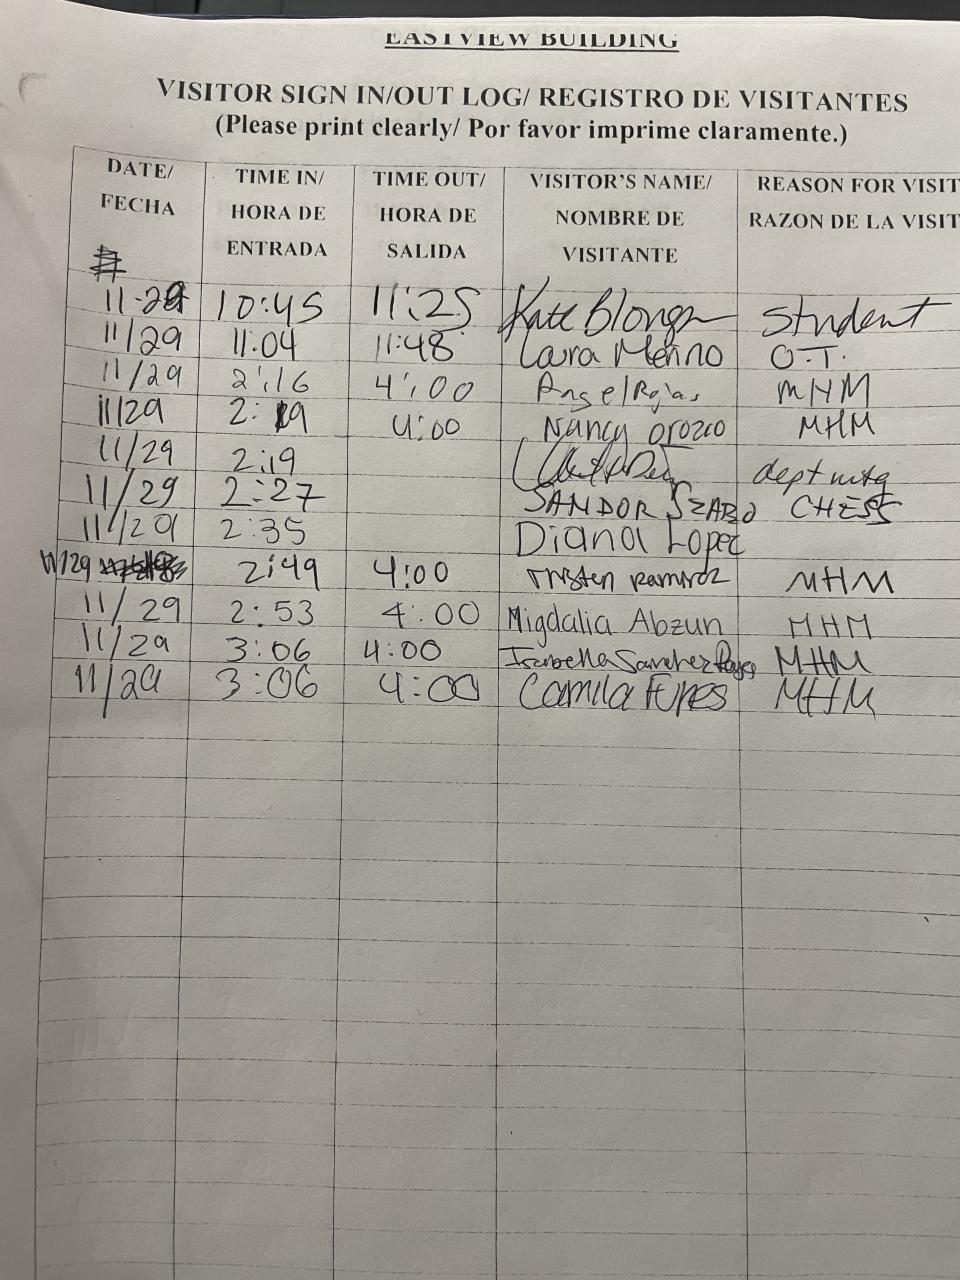 EASTVIEW BUILDING
VISITOR SIGN IN/OUT LOG/ REGISTRO DE VISITANTES
(Please print clearly/ Por favor imprime claramente.)
DATE/ FECHA TIME IN/ HORA DE ENTRADA TIME OUT/ HORA DE SALIDA VISITOR'S NAME/ NOMBRE DE VISITANTE REASON FOR VISIT RAZON DE LA VISIT
11-29 10:45 11:25 Kate student
11/29 11:04 11:48 Lara Merino O.T.
11/29 2:16 4:00 Angel Rojas MHM
11/29 2:19 4:00 Nancy Orozco MHM
11/29 2:19 dept mtg
11/29 2:27 SANDOR SZABO CHESS
11/29 2:35 Diana Lopez
11/29 2:49 4:00 Tristen Ramirez MHM
11/29 2:53 4:00 Migdalia Abzun MHM
11/29 3:06 4:00 Isabella Sanchez MHM
11/29 3:06 4:00 Camila Funes MHM